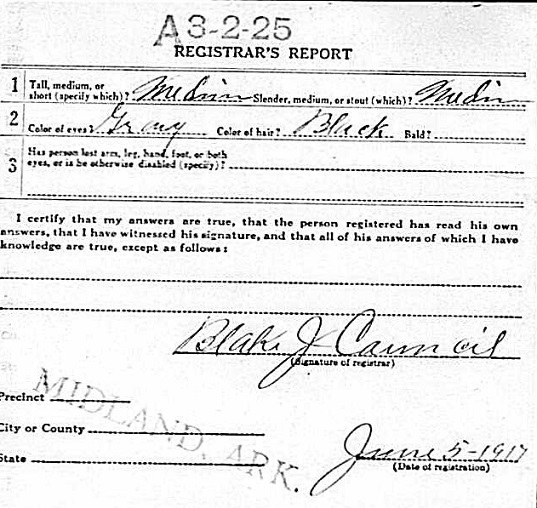 A 3-2-25
REGISTRAR'S REPORT
1 Tall, medium, or short (specify which)? Medium Slender, medium, or stout (which)? Medium
2 Color of eyes? Gray Color of hair? Black Bald?
3 Has person lost arm, leg, hand, foot, or both
eyes, or is he otherwise disabled (specify)?
I certify that my answers are true, that the person registered has read his own
answers, that I have witnessed his signature, and that all of his answers of which I have
knowledge are true, except as follows:
Blake J Council
(Signature of registrar)
Precinct
City or County
State
MIDLAND, ARK.
June 5-1917
(Date of registration)